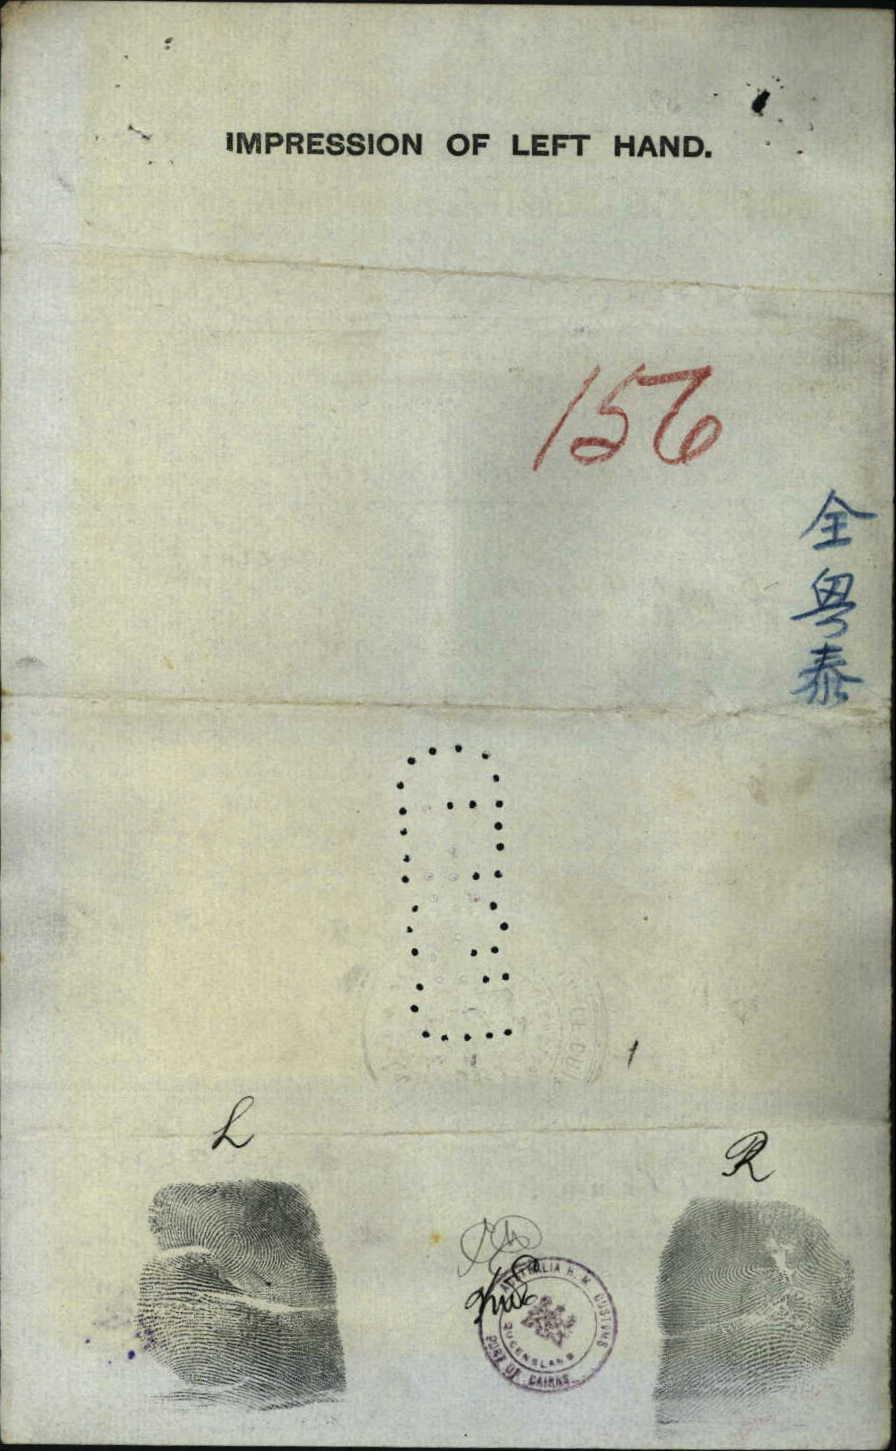 IMPRESSION OF LEFT HAND.
156
全粤泰
L
R
AUSTRALIA H. M. CUSTOMS
QUEENSLAND
PORT OF CAIRNS